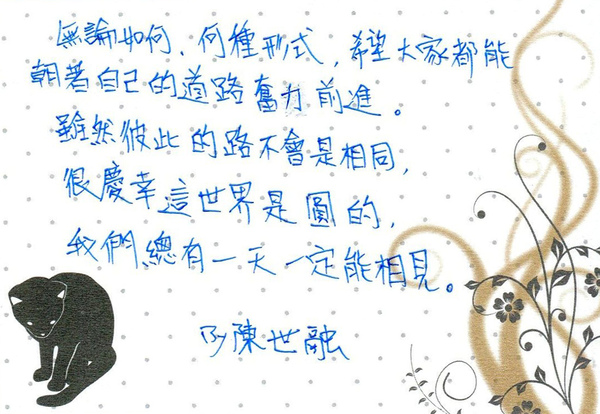 無論如何、何種形式，希望大家都能
朝著自己的道路奮力前進。
雖然彼此的路不會是相同，
很慶幸這世界是圓的，
我們總有一天一定能相見。
陳世融